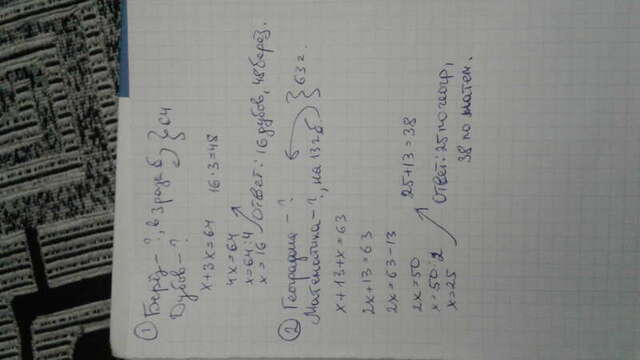 ① Берёз - ?, в 3 раза б. } 64
Дубов - ?
x+3x=64 16·3=48
4x=64
x=64:4
x=16 Ответ: 16 дубов, 48 берёз.
② География - ? } 63 г.
Математика - ?, на 13 г б.
x+13+x=63
2x+13=63
2x=63-13
2x=50 25+13=38
x=50:2 Ответ: 25 по геогр,
x=25 38 по матем.